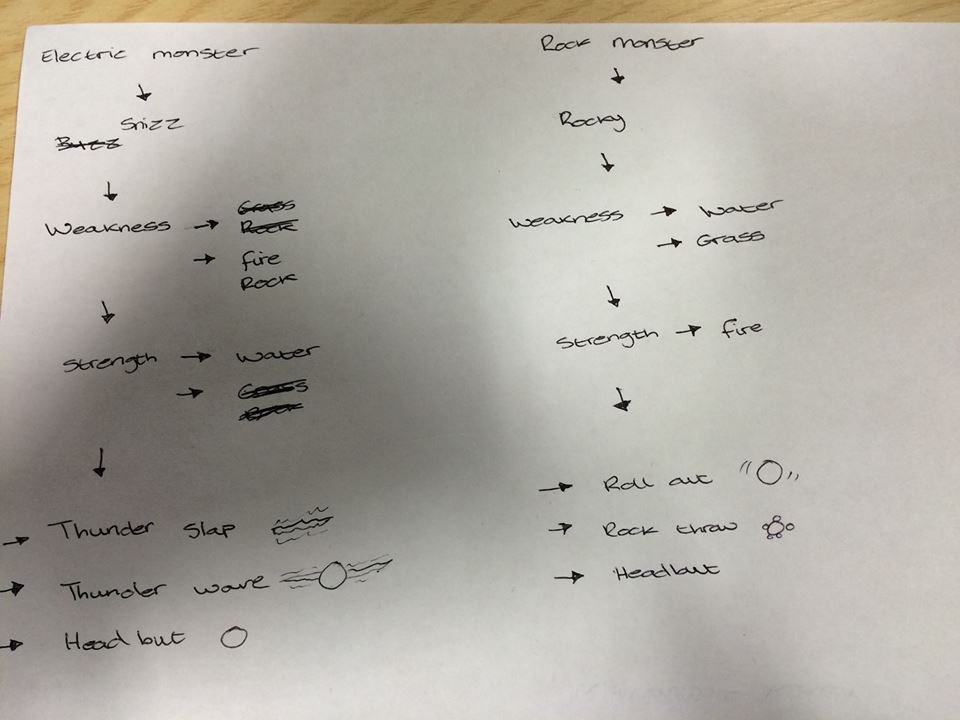 Electric monster
Snizz
Buzz
Weakness → Grass
Rock
→ fire
Rock
Strength → Water
→ Grass
Rock
→ Thunder Slap
→ Thunder wave
→ Headbut
Rock monster
Rocky
Weakness → Water
→ Grass
Strength → fire
→ Roll out
→ Rock throw
→ Headbut